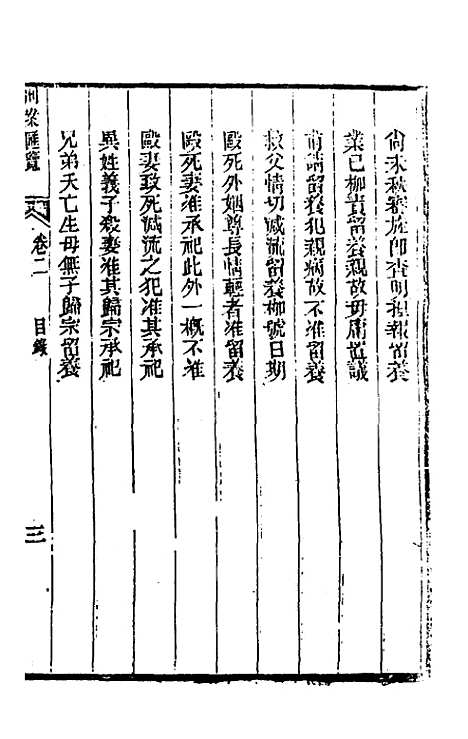 尚未秋審旋即查明親報留養
業已枷責留養親故毋庸置議
前請留養犯親病故不准留養
救父情切減流留養枷號日期
毆死外姻尊長情輕者准留養
毆死妻准承祀此外一概不准
毆妻致死減流之犯准其承祀
異姓義子殺妻准其歸宗承祀
兄弟夭亡生母無子歸宗留養
案匯覽 卷二 目錄 三